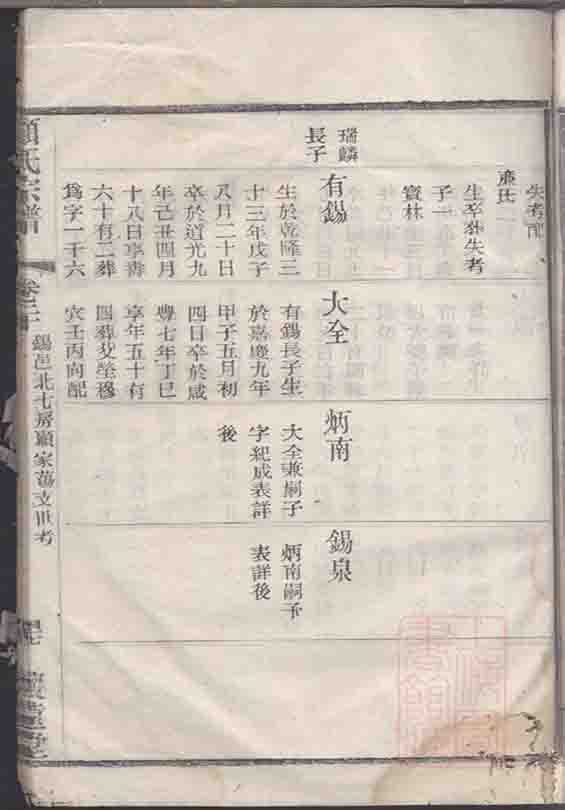 失考配
氏
生卒葬失考
子一
寶林
瑞麟
長子
有錫
生於乾隆三
十三年戊子
八月二十日
卒於道光九
年己丑四月
十八日享壽
六十有二葬
爲字一千六
大全
有錫長子生
於嘉慶九年
甲子五月初
四日卒於咸
豐七年丁巳
享年五十有
四葬父塋穆
穴壬丙向配
炳南
大全兼嗣子
字紀成表詳
後
錫泉
炳南嗣子
表詳後
顧氏宗譜
錫邑北七房顧家蕩支世考